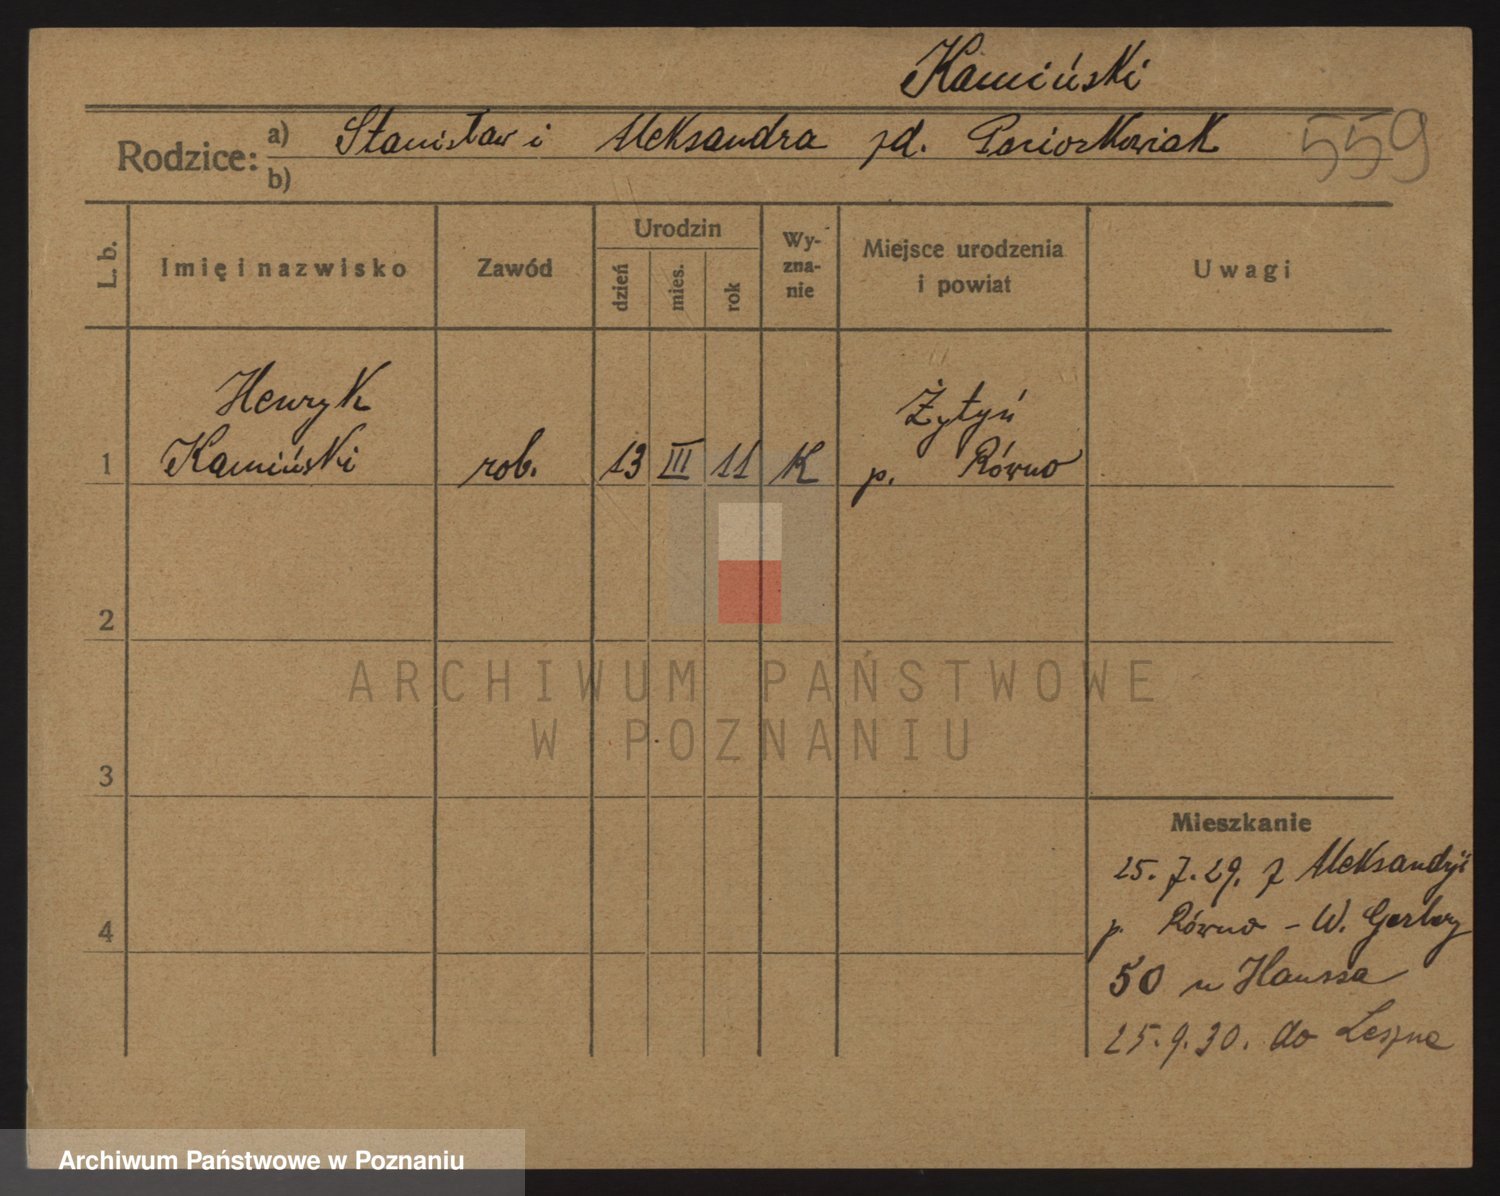 Kamiński
Rodzice: a) Stanisław i Aleksandra zd. 559
b)
L. b. Imię i nazwisko Zawód Urodzin dzień mies. rok Wyzna-nie Miejsce urodzenia i powiat Uwagi
Henryk Żytyń
1 Kamiński rob. 13 III 11 K p. Równo
2
3
4
Mieszkanie
25.7.29. z Aleksandrji
p. Równo - W. Garbary
50 u Haussa
25.9.30. do Leszna
ARCHIWUM PAŃSTWOWE
W POZNANIU
Archiwum Państwowe w Poznaniu